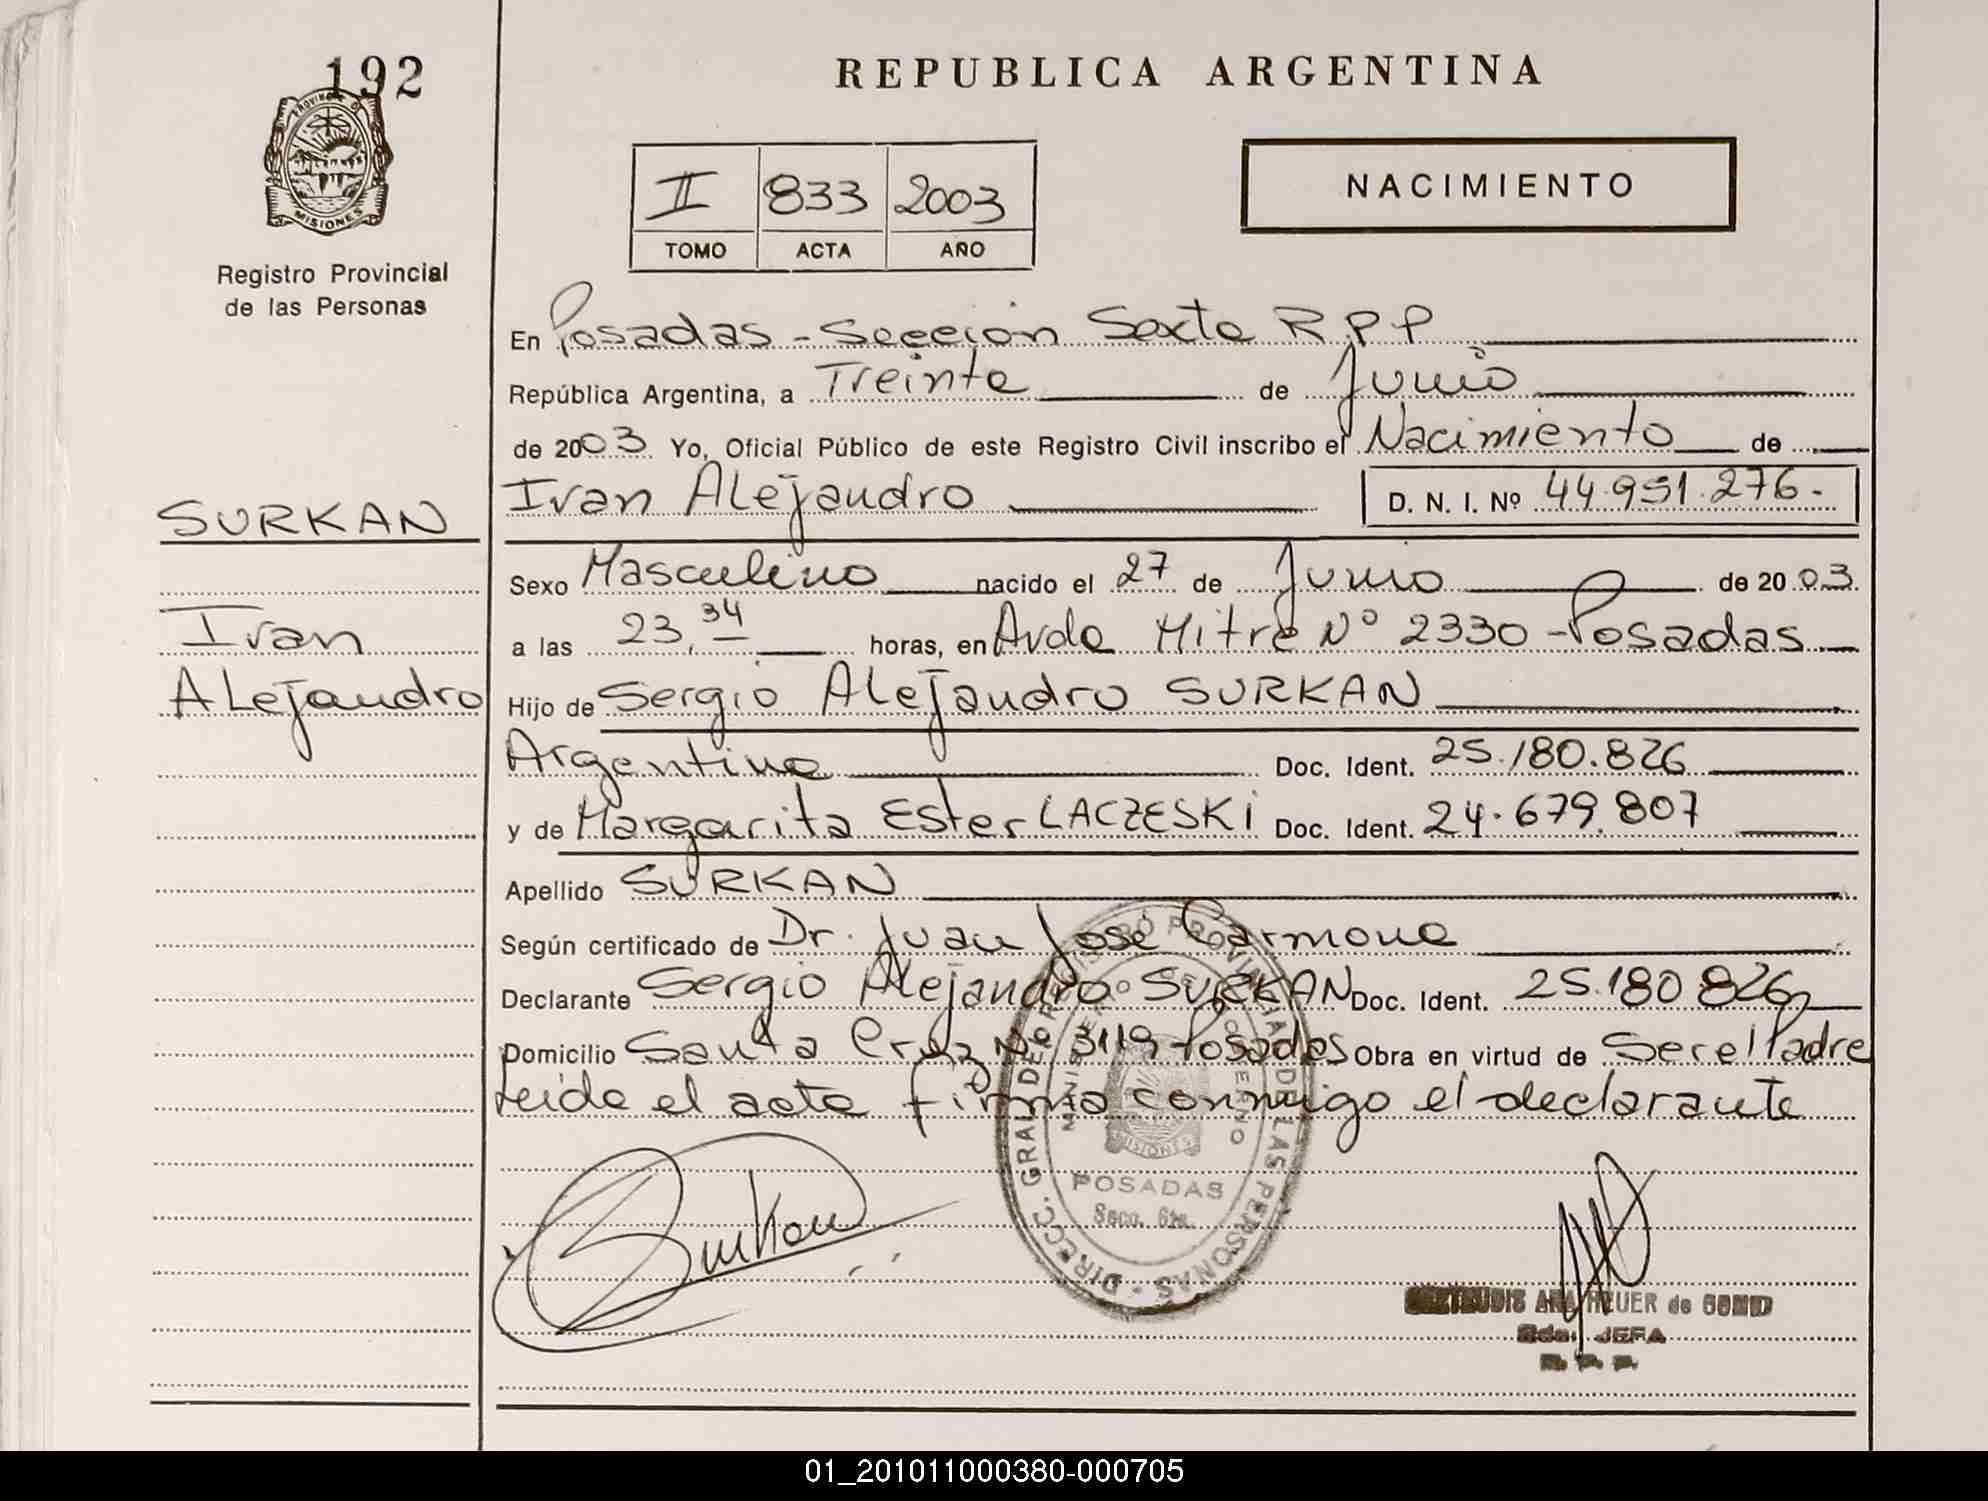 192
PROVINCIA DE
MISIONES
Registro Provincial
de las Personas
SURKAN
Ivan
Alejandro
REPUBLICA ARGENTINA
II 833 2003
TOMO ACTA AÑO
NACIMIENTO
En Posadas - Sección Sexta R.P.P
República Argentina, a Treinta de Junio
de 2003 Yo, Oficial Público de este Registro Civil inscribo el Nacimiento de
Ivan Alejandro D. N. I. Nº 44.951.276.-
Sexo Masculino nacido el 27 de Junio de 2003.
a las 23,34 horas, en Avda Mitre Nº 2330 - Posadas
Hijo de Sergio Alejandro SURKAN
Argentina Doc. Ident. 25.180.826
y de Margarita Ester LACZESKI Doc. Ident. 24.679.807
Apellido SURKAN
Según certificado de Dr. Juan José Carmona
Declarante Sergio Alejandro SURKAN Doc. Ident. 25.180 826
Domicilio Santa Cruz Nº 3119 Posadas Obra en virtud de Ser el Padre
Leida el acta firma conmigo el declarante
Surkan
DIRECC. GRAL DE REGISTRO PROVINCIAL DE LAS PERSONAS
MINISTERIO DE GOBIERNO
MISIONES
POSADAS
Secc. 6ta.
ANA HEUER de
Sda. JEFA
R. P. P.
01_201011000380-000705